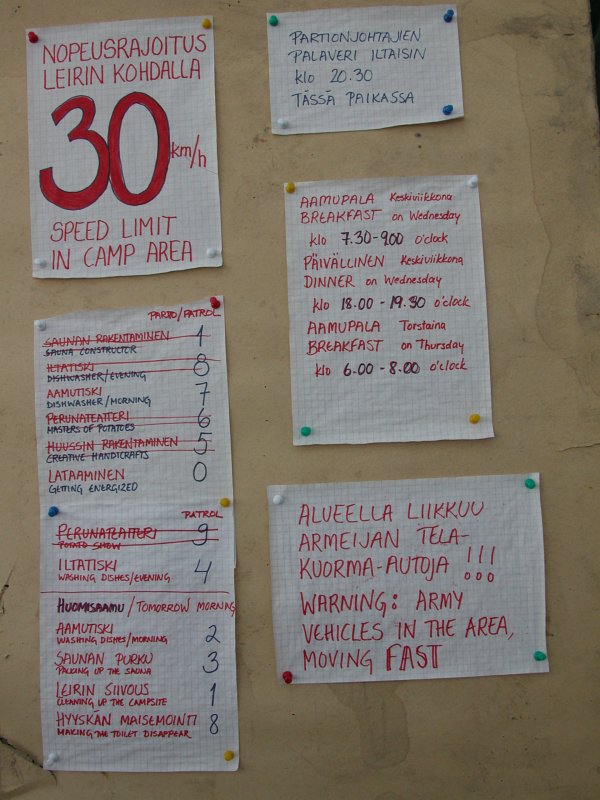 NOPEUSRAJOITUS
LEIRIN KOHDALLA
30 km/h
SPEED LIMIT
IN CAMP AREA
PARTIONJOHTAJIEN
PALAVERI ILTAISIN
klo 20.30
TÄSSÄ PAIKASSA
AAMUPALA Keskiviikkona
BREAKFAST on Wednesday
klo 7.30-9.00 o'clock
PÄIVÄLLINEN Keskiviikkona
DINNER on Wednesday
klo 18.00 - 19.30 o'clock
AAMUPALA Torstaina
BREAKFAST on Thursday
klo 6.00 - 8.00 o'clock
PARTIO/PATROL
SAUNAN RAKENTAMINEN 1
SAUNA CONSTRUCTOR
ILTATISKI 8
DISHWASHER/EVENING
AAMUTISKI 7
DISHWASHER/MORNING
PERUNATEATTERI 6
MASTERS OF POTATOES
HUUSSIN RAKENTAMINEN 5
CREATIVE HANDICRAFTS
LATAAMINEN 0
GETTING ENERGIZED
PATROL
PERUNATEATTERI 9
POTATO SHOW
ILTATISKI 4
WASHING DISHES/EVENING
HUOMISAAMU/TOMORROW MORNING
AAMUTISKI 2
WASHING DISHES/MORNING
SAUNAN PURKU 3
PACKING UP THE SAUNA
LEIRIN SIIVOUS 1
CLEANING UP THE CAMPSITE
HYYSKÄN MAISEMOINTI 8
MAKING THE TOILET DISAPPEAR
ALUEELLA LIIKKUU
ARMEIJAN TELA-
KUORMA-AUTOJA !!!
WARNING: ARMY
VEHICLES IN THE AREA,
MOVING FAST